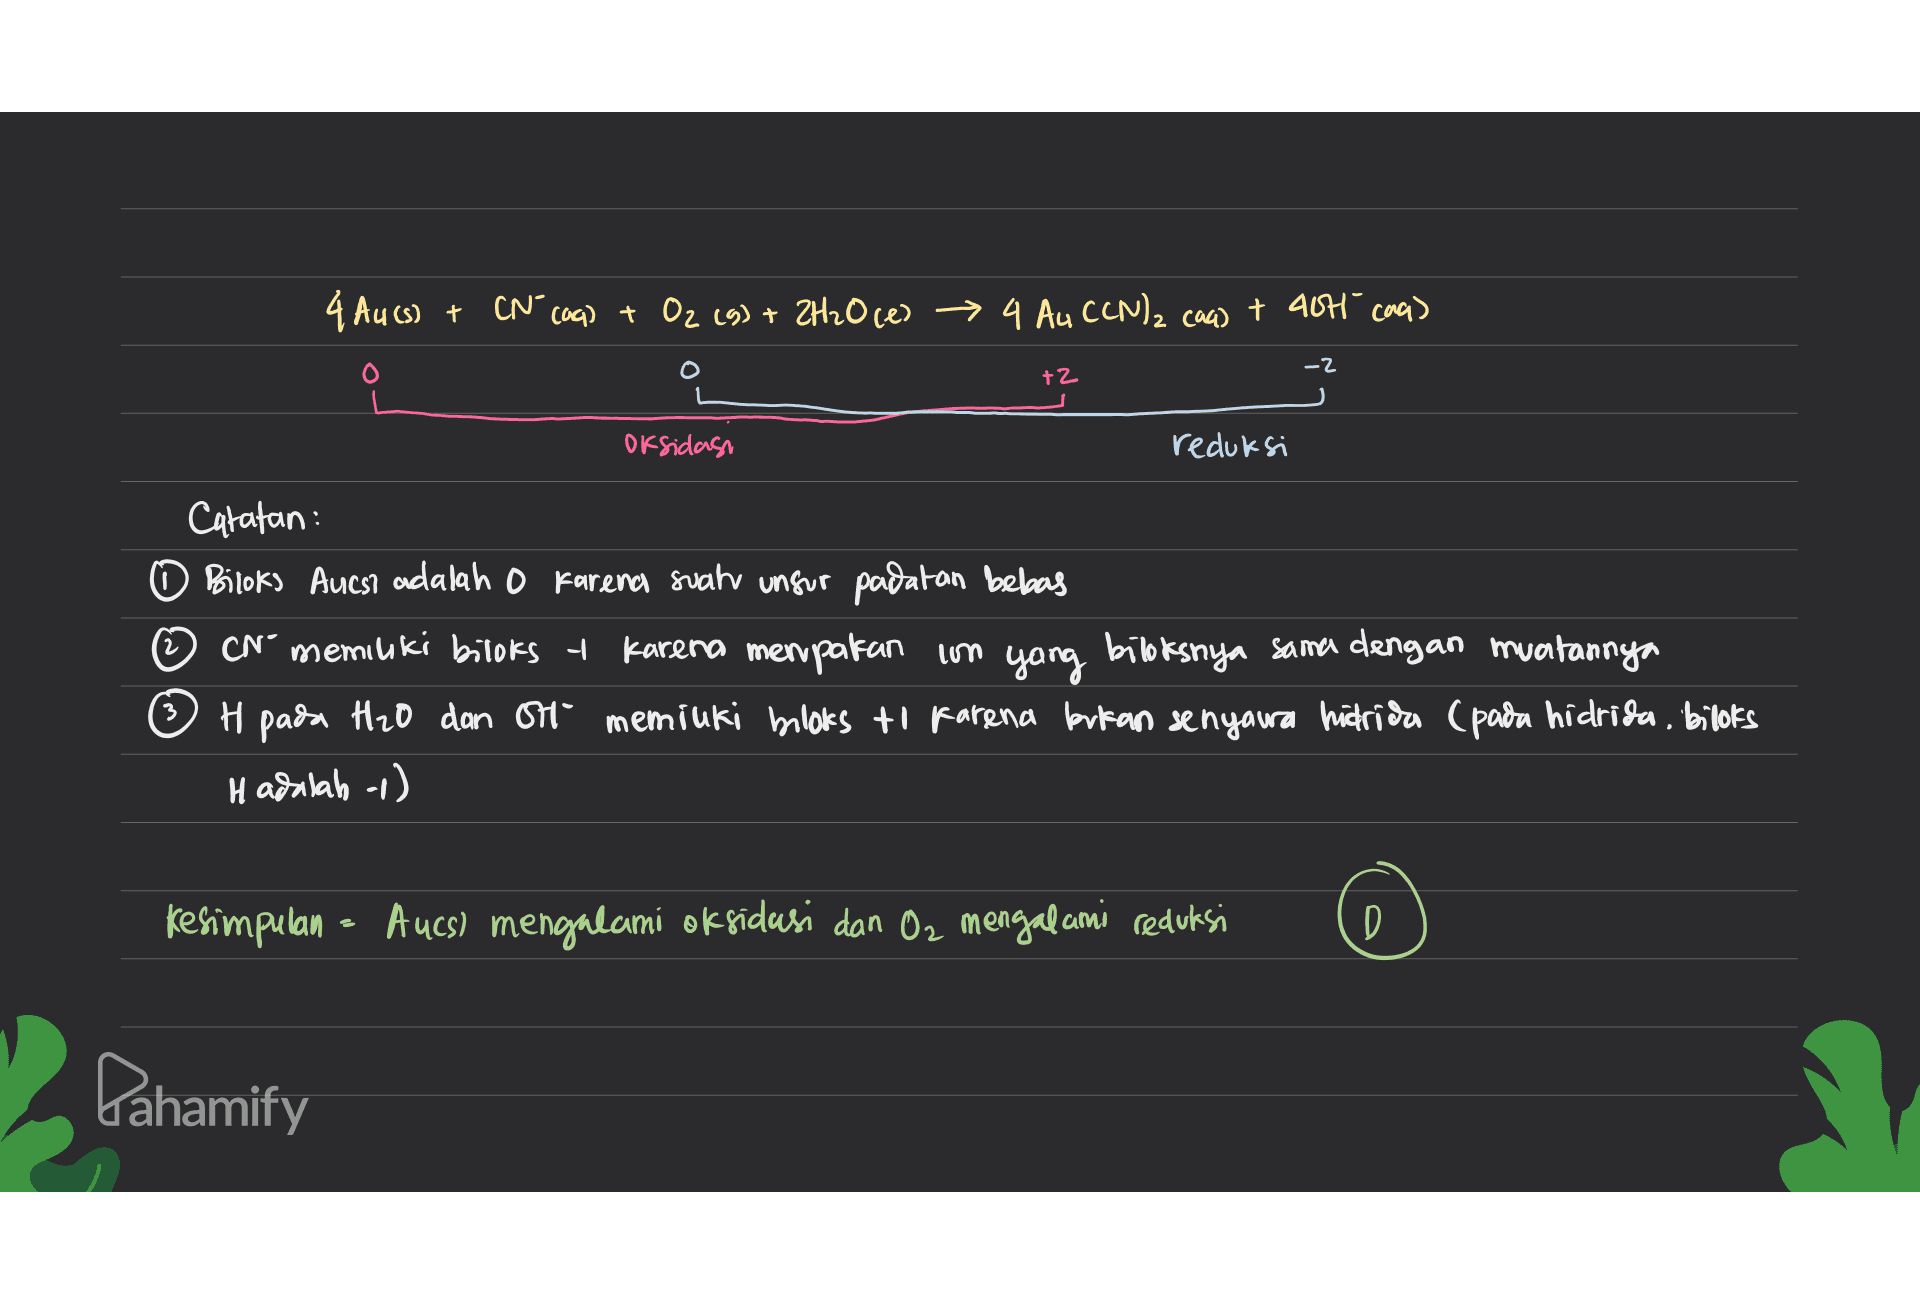 4 Au(s) + CN⁻(aq) + O₂(g) + 2H₂O(l) → 4 Au(CN)₂ (aq) + 4OH⁻(aq)
0 0 +2 -2
oksidasi reduksi
Catatan:
① Biloks Au(s) adalah 0 karena suatu unsur padatan bebas
② CN⁻ memiliki biloks -1 karena merupakan ion yang biloksnya sama dengan muatannya
③ H pada H₂O dan OH⁻ memiliki biloks +1 karena bukan senyawa hidrida (pada hidrida, biloks
H adalah -1)
Kesimpulan = Au(s) mengalami oksidasi dan O₂ mengalami reduksi D
Pahamify